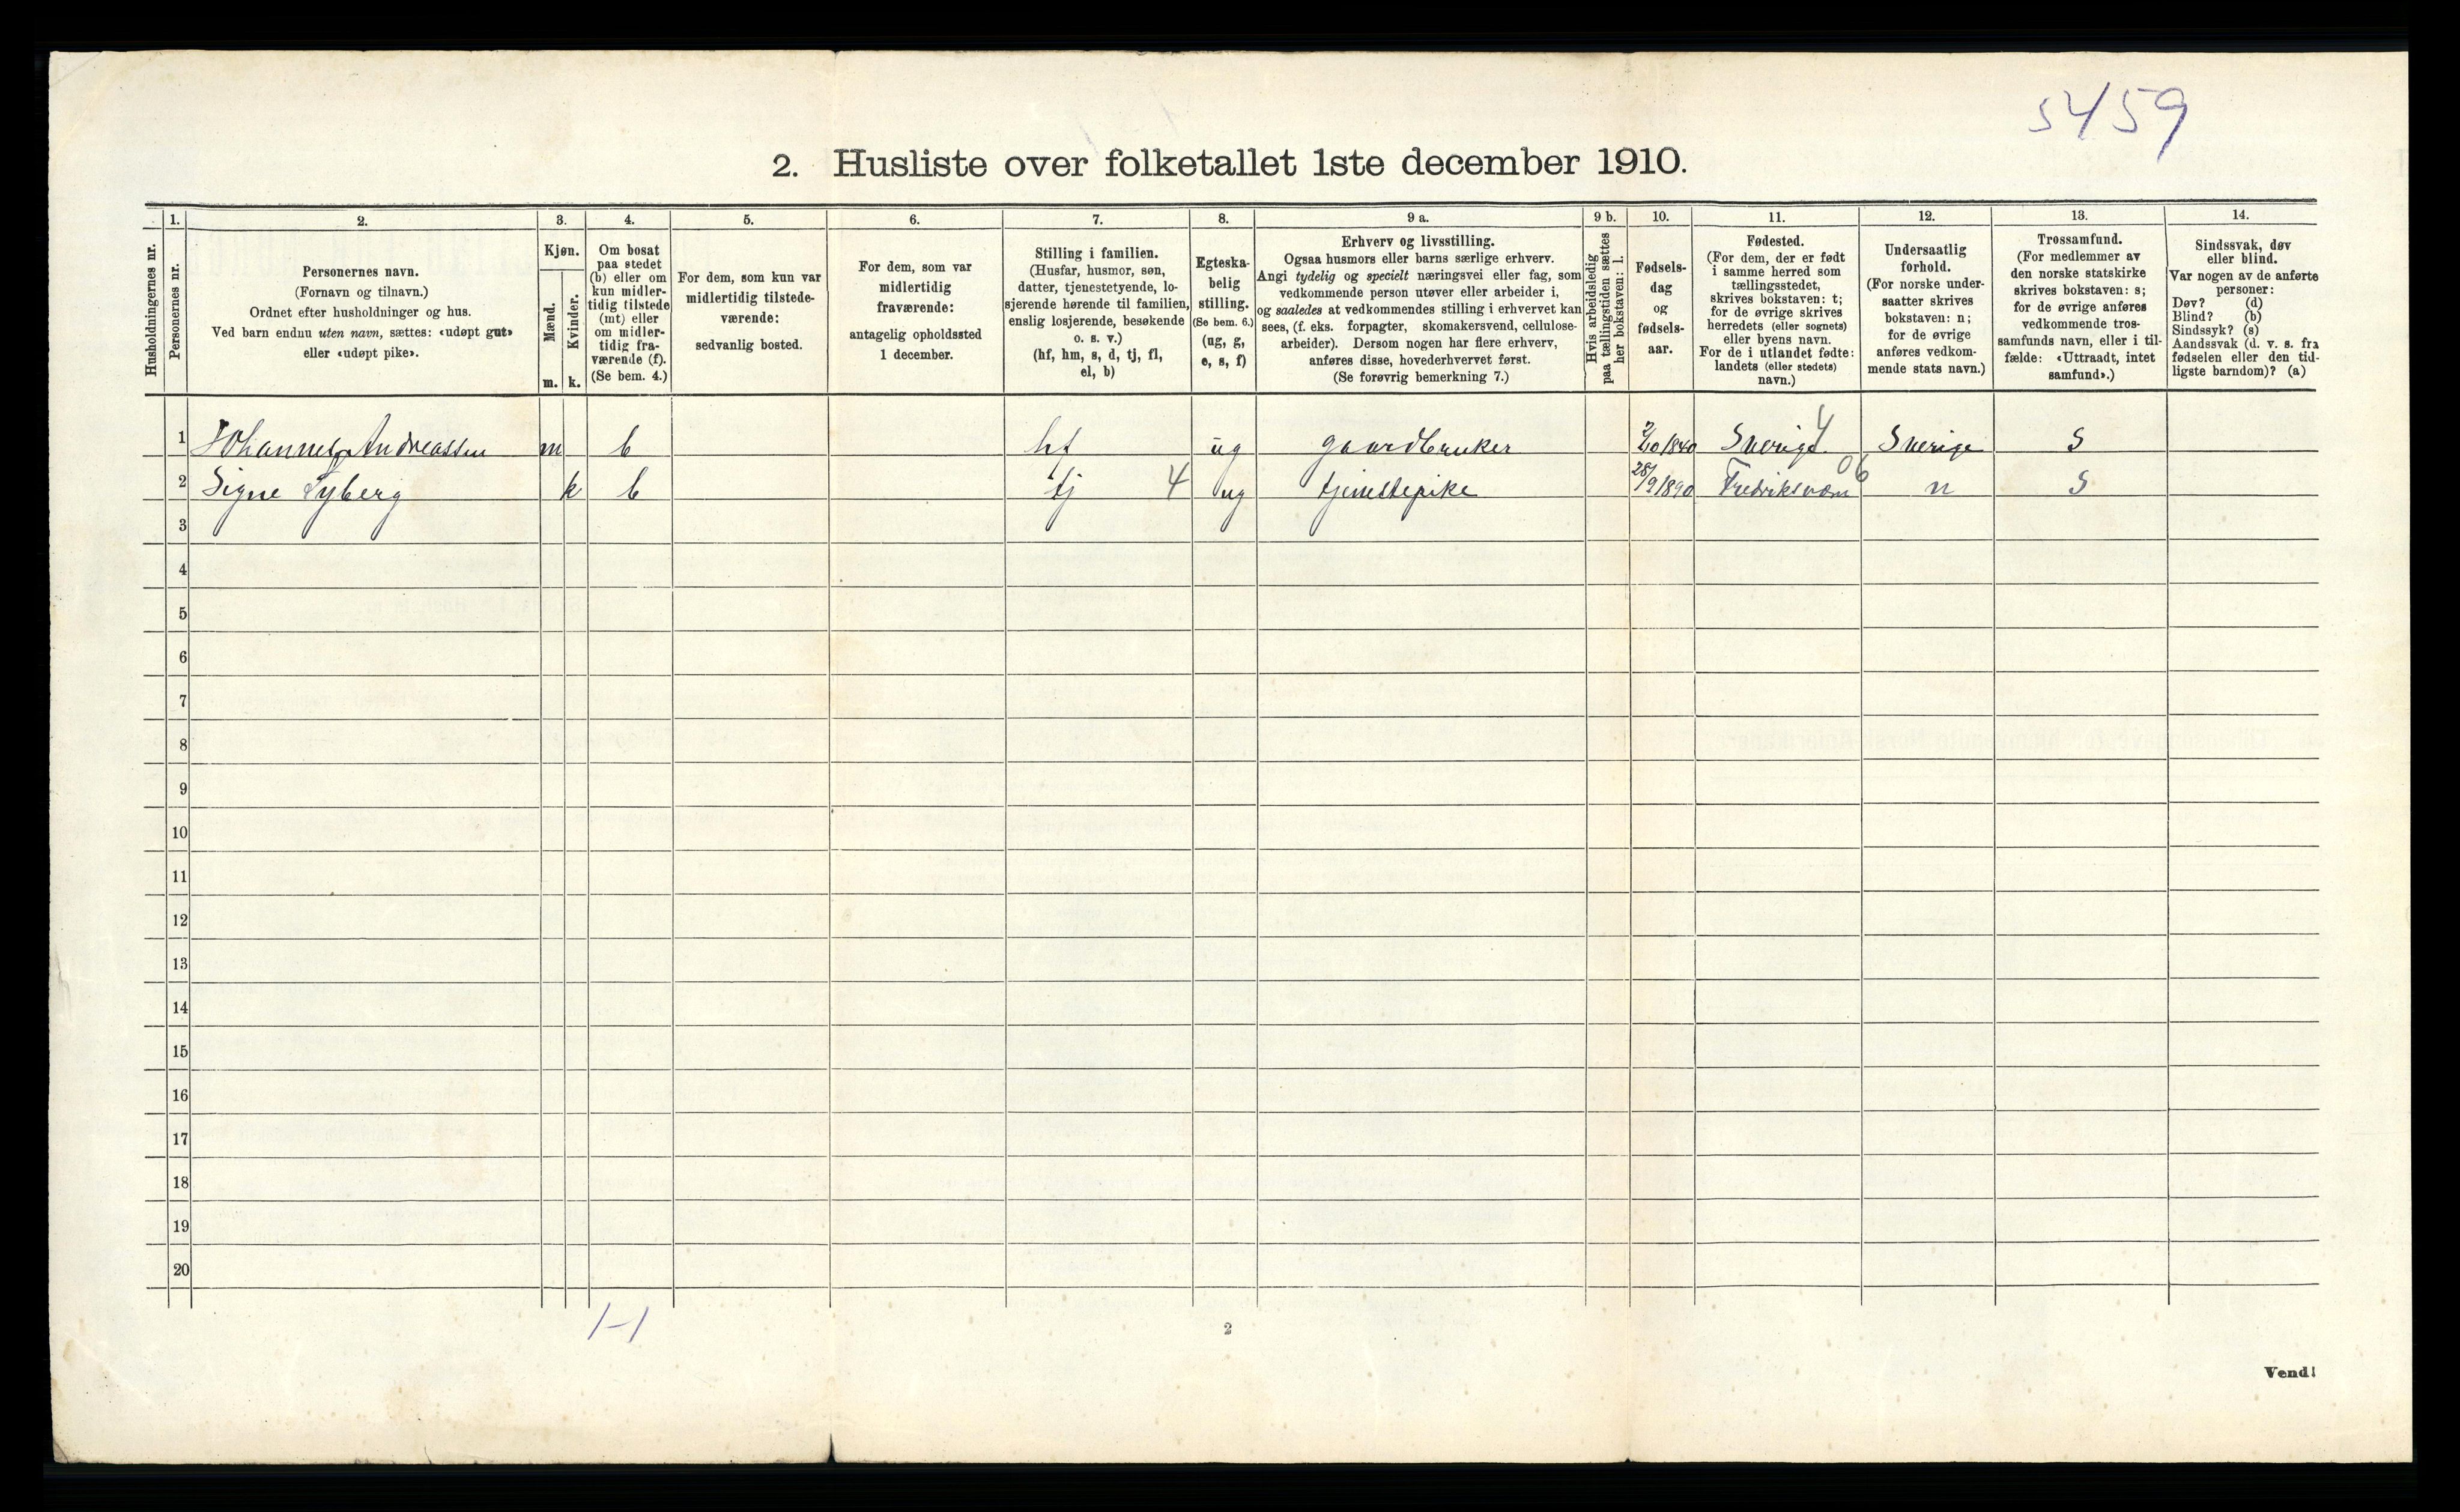 5459
2. Husliste over folketallet 1ste december 1910.
Husholdningernes nr.
1.
Personernes nr.
2.
Personernes navn.
(Fornavn og tilnavn.)
Ordnet efter husholdninger og hus.
Ved barn endnu uten navn, sættes: «udøpt gut»
eller «udøpt pike».
3.
Kjøn.
Mænd.
Kvinder.
m. k.
4.
Om bosat
paa stedet
(b) eller om
kun midler-
tidig tilstede
(mt) eller
om midler-
tidig fra-
værende (f).
(Se bem. 4.)
5.
For dem, som kun var
midlertidig tilstede-
værende:
sedvanlig bosted.
6.
For dem, som var
midlertidig
fraværende:
antagelig opholdssted
1 december.
7.
Stilling i familien.
(Husfar, husmor, søn,
datter, tjenestetyende, lo-
sjerende hørende til familien,
enslig losjerende, besøkende
o. s. v.)
(hf, hm, s, d, tj, fl,
el, b)
8.
Egteska-
belig
stilling.
(Se bem. 6.)
(ug, g,
e, s, f)
9 a.
Erhverv og livsstilling.
Ogsaa husmors eller barns særlige erhverv.
Angi tydelig og specielt næringsvei eller fag, som
vedkommende person utøver eller arbeider i,
og saaledes at vedkommendes stilling i erhvervet kan
sees, (f. eks. forpagter, skomakersvend, cellulose-
arbeider). Dersom nogen har flere erhverv,
anføres disse, hovederhvervet først.
(Se forøvrig bemerkning 7.)
9 b.
Hvis arbeidsledig
paa tællingstiden sættes
her bokstaven: l.
10.
Fødsels-
dag
og
fødsels-
aar.
11.
Fødested.
(For dem, der er født
i samme herred som
tællingsstedet,
skrives bokstaven: t;
for de øvrige skrives
herredets (eller sognets)
eller byens navn.
For de i utlandet fødte:
landets (eller stedets)
navn.)
12.
Undersaatlig
forhold.
(For norske under-
saatter skrives
bokstaven: n;
for de øvrige
anføres vedkom-
mende stats navn.)
13.
Trossamfund.
(For medlemmer av
den norske statskirke
skrives bokstaven: s;
for de øvrige anføres
vedkommende tros-
samfunds navn, eller i til-
fælde: «Uttraadt, intet
samfund».)
14.
Sindssvak, døv
eller blind.
Var nogen av de anførte
personer:
Døv? (d)
Blind? (b)
Sindssyk? (s)
Aandssvak (d. v. s. fra
fødselen eller den tid-
ligste barndom)? (a)
1 Johannes Andreassen m b hf ug gaardbruker 2/10 1840 Sverige 4 Sverige S
2 Signe Syberg k b tj 4 ug tjenestepike 28/9 1890 Fredriksværn 06 n S
3
4
5
6
7
8
9
10
11
12
13
14
15
16
17
18
19
20
1-1
2
Vend!